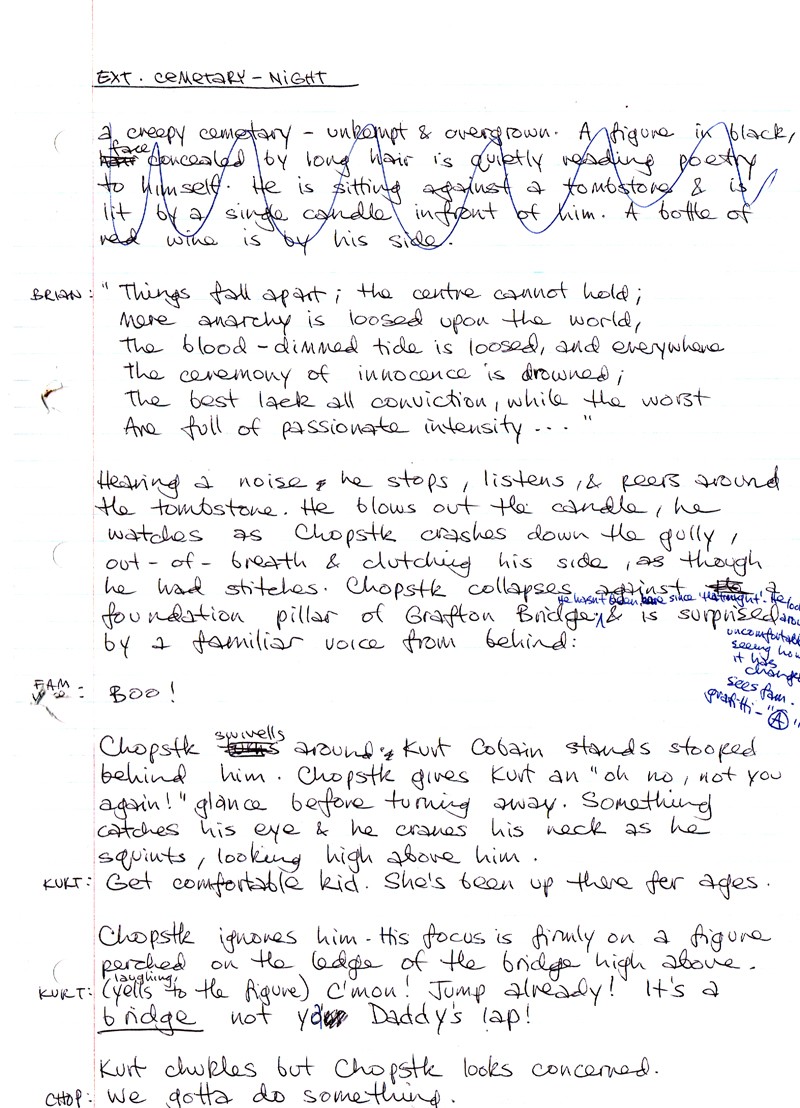 EXT. CEMETARY - NIGHT
a creepy cemetary - unkempt & overgrown. A figure in black,
face
concealed by long hair is quietly reading poetry
to himself. He is sitting against a tombstone & is
lit by a single candle infront of him. A bottle of
red wine is by his side.
BRIAN: "Things fall apart; the centre cannot hold;
Mere anarchy is loosed upon the world,
The blood-dimmed tide is loosed, and everywhere
The ceremony of innocence is drowned;
The best lack all conviction, while the worst
Are full of passionate intensity..."
Hearing a noise, he stops, listens, & peers around
the tombstone. He blows out the candle, he
watches as Chopstk crashes down the gully,
out-of-breath & clutching his side, as though
he had stitches. Chopstk collapses against a
He hasn't been here since 'that night'. He
foundation pillar of Grafton Bridge, & is surprised
by a familiar voice from behind:
seeing how
it has
sees fam.
grafitti - "Ⓐ"
FAM
BOO!
swivells
Chopstk around. Kurt Cobain stands stooped
behind him. Chopstk gives Kurt an "oh no, not you
again!" glance before turning away. Something
catches his eye & he cranes his neck as he
squints, looking high above him.
KURT: Get comfortable kid. She's been up there fer ages.
Chopstk ignores him. His focus is firmly on a figure
perched on the ledge of the bridge high above.
laughing,
KURT: (yells to the figure) C'mon! Jump already! It's a
bridge not ya Daddy's lap!
Kurt chukles but Chopstk looks concerned.
CHOP: We gotta do something.